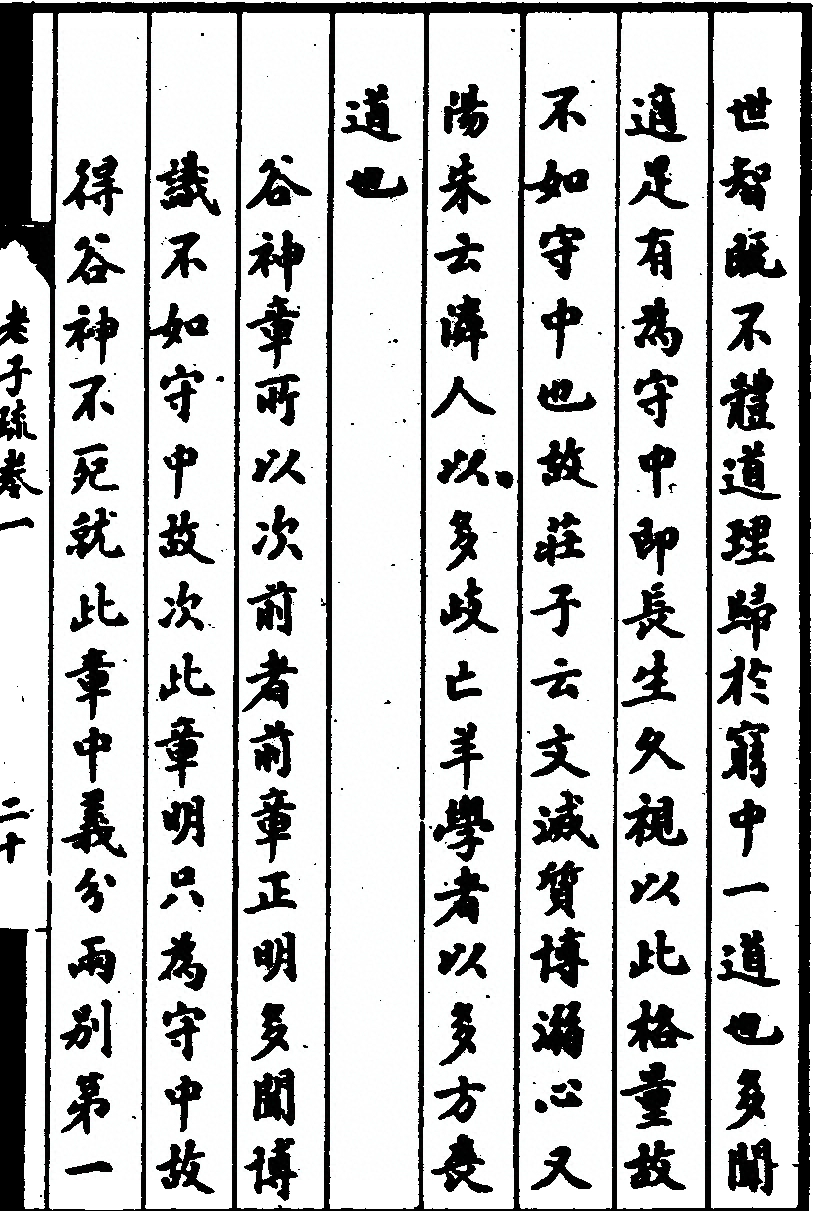 世智既不體道理歸於窮中一道也多聞
適足有為守中即長生久視以此格量故
不如守中也故莊子云文滅質博溺心又
陽朱云濟人以多歧亡羊學者以多方喪
道也
谷神章所以次前者前章正明多聞博
識不如守中故次此章明只為守中故
得谷神不死就此章中義分兩別第一
老子疏卷一
二十